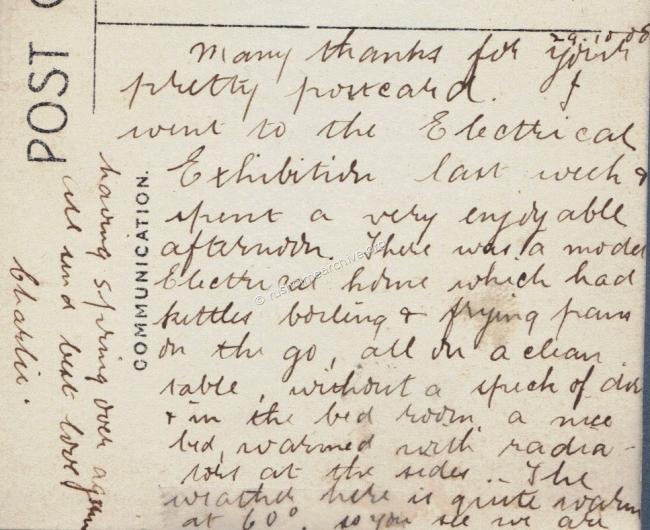 29.10.08
Many thanks for your
pretty postcard. I
went to the Electrical
Exhibition last week &
spent a very enjoyable
afternoon. There was a model
Electrical home which had
kettles boiling & frying pans
on the go, all on a clean
table, without a speck of dirt
& in the bed room, a nice
bed, warmed with radia-
tors at the sides.. The
weather here is quite warm
at 60°, so you see we are
having spring over again
All send best love from
Charlie.
POST C
COMMUNICATION.
© rusholmearchive.org